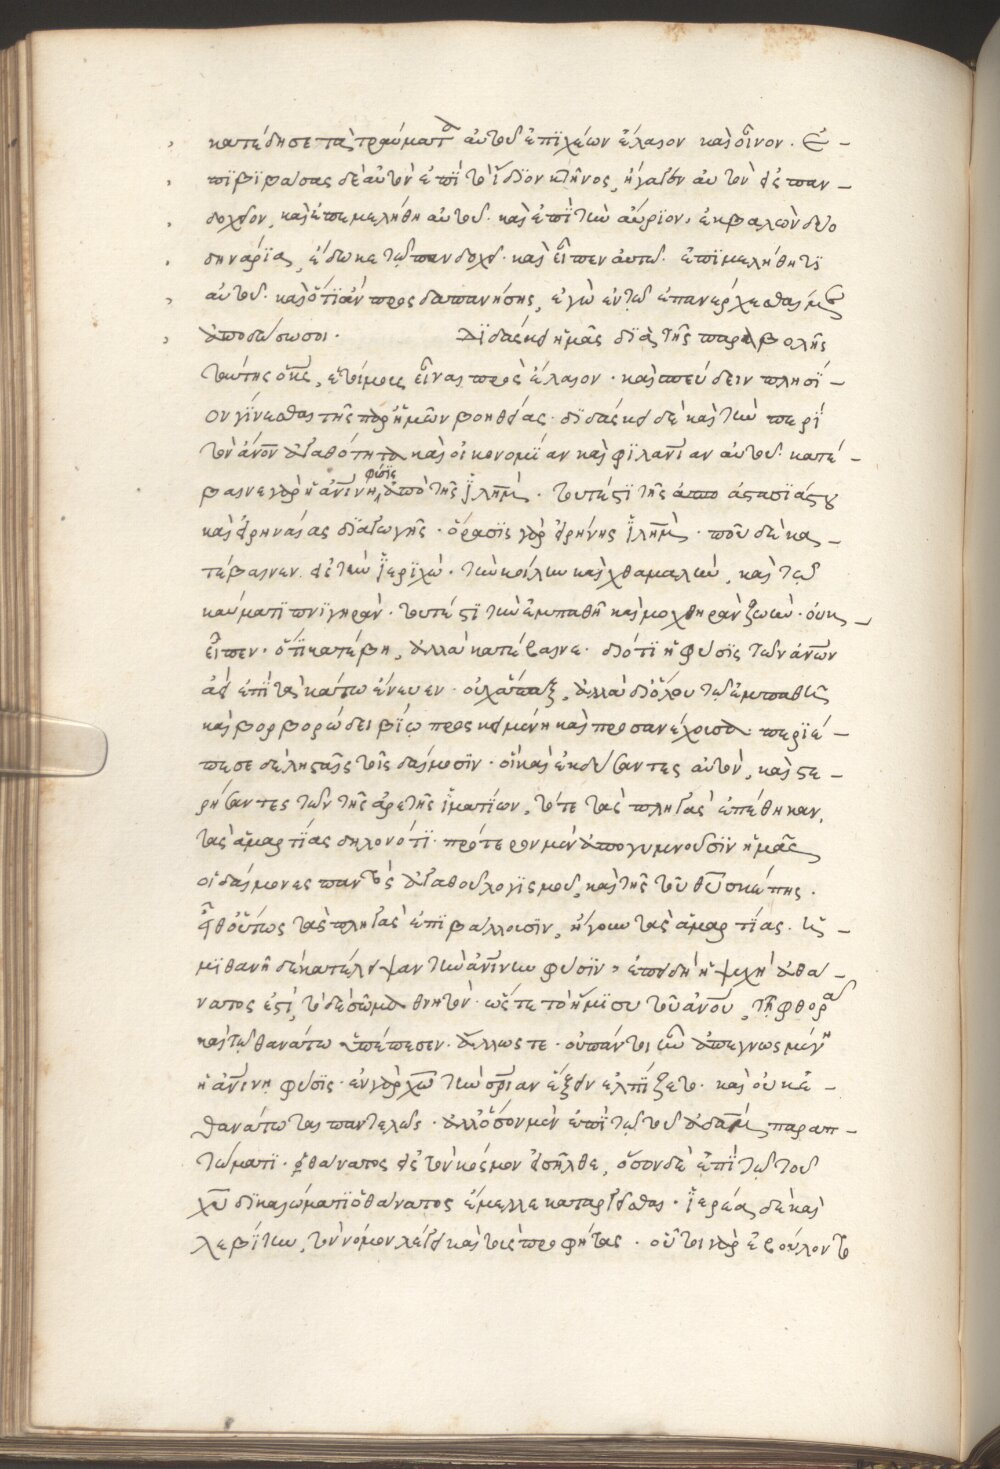 κατέδησε τὰ τραύματα αὐτοῦ ἐπιχέων ἔλαιον καὶ οἶνον. Ἐ-
πιβιβάσας δὲ αὐτὸν ἐπὶ τὸ ἴδιον κτῆνος, ἤγαγεν αὐτὸν εἰς παν-
δοχεῖον, καὶ ἐπεμελήθη αὐτοῦ· καὶ ἐπὶ τὴν αὔριον, ἐκβαλὼν δύο
δηνάρια, ἔδωκε τῷ πανδοχεῖ· καὶ εἶπεν αὐτῷ· ἐπιμελήθητι
αὐτοῦ· καὶ ὅτι ἂν προσδαπανήσῃς, ἐγὼ ἐν τῷ ἐπανέρχεσθαί με
ἀποδώσω σοι. Διδάσκει ἡμᾶς διὰ τῆς παραβολῆς
ταύτης ὁ κς, ἑτοίμους εἶναι πρὸς ἔλαιον· καὶ σπεύδειν πλησί-
ον γίνεσθαι τῆς παρ' ἡμῶν βοηθείας· διδάσκει δὲ καὶ τὴν περὶ
τὸν ἄνον ἀγαθότητα καὶ οἰκονομίαν καὶ φιλανίαν αὐτοῦ· κατέ-
βαινε γὰρ ἡ ἀνίνη φύσις, ἀπὸ τῆς ἱλημ· τουτέστι τῆς ἀπὸ ἀστασιάστου
καὶ εἰρηναίας διαγωγῆς· ὅρασις γὰρ εἰρήνης ἱλημ· ποῦ δὲ κα-
τέβαινεν· εἰς τὴν ἱεριχώ· τὴν κοίλην καὶ χθαμαλὴν, καὶ τῷ
καύματι πνιγηράν· τουτέστι τὴν ἐμπαθῆ καὶ μοχθηρὰν ζωήν· οὐκ
εἶπεν· ὅτι κατέβη, ἀλλὰ κατέβαινε· διότι ἡ φύσις τῶν ἀνων
ἀεὶ ἐπὶ τὰ κάτω ἔνευεν· οὐχ ἅπαξ, ἀλλὰ διόλου τῷ ἐμπαθεῖ
καὶ βορβορώδει βίῳ προσκειμένη καὶ προσανέχουσα· περιέ-
πεσε δὲ λησταῖς τοῖς δαίμοσιν· οἳ καὶ ἐκδύσαντες αὐτὸν, καὶ στε-
ρήσαντες τῶν τῆς ἀρετῆς ἱματίων, τότε τὰς πληγὰς ἐπέθηκαν,
τὰς ἁμαρτίας δηλονότι· πρότερον μὲν ἀπογυμνοῦσιν ἡμᾶς
οἱ δαίμονες παντὸς ἀγαθοῦ λογισμοῦ, καὶ τῆς τοῦ θυ σκέπης·
εἶθ' οὕτως τὰς πληγὰς ἐπιβάλλουσιν, ἤγουν τὰς ἁμαρτίας. ἡ-
μιθανῆ δὲ κατέλειψαν τὴν ἀνίνην φύσιν, ἐπειδὴ ἡ ψυχὴ ἀθά-
νατος ἐστὶ, τὸ δὲ σῶμα θνητόν· ὥστε τὸ ἥμισυ τοῦ ἀνου, τῇ φθορᾷ
καὶ τῷ θανάτῳ ὑπέπεσεν· ἄλλως τε· οὐ παντοίως ἦν ἀπεγνωσμένη
ἡ ἀνίνη φύσις· ἐν γὰρ χω τὴν σριαν ἕξειν ἐλπίζετο· καὶ οὐκ ἐ-
θανάτωται παντελῶς· ἀλλ' ὅσον μὲν ἐπὶ τῷ τοῦ ἀδὰμ παραπ-
τώματι· ὁ θάνατος εἰς τὸν κόσμον εἰσῆλθε, ὅσον δὲ ἐπὶ τῷ τοῦ
χυ δικαιώματι ὁ θάνατος ἔμελλε καταργεῖσθαι· ἱερέα, δὲ καὶ
λεβίτην, τὸν νόμον λέγει καὶ τοὺς προφήτας· οὗτοι γὰρ ἐβούλοντο